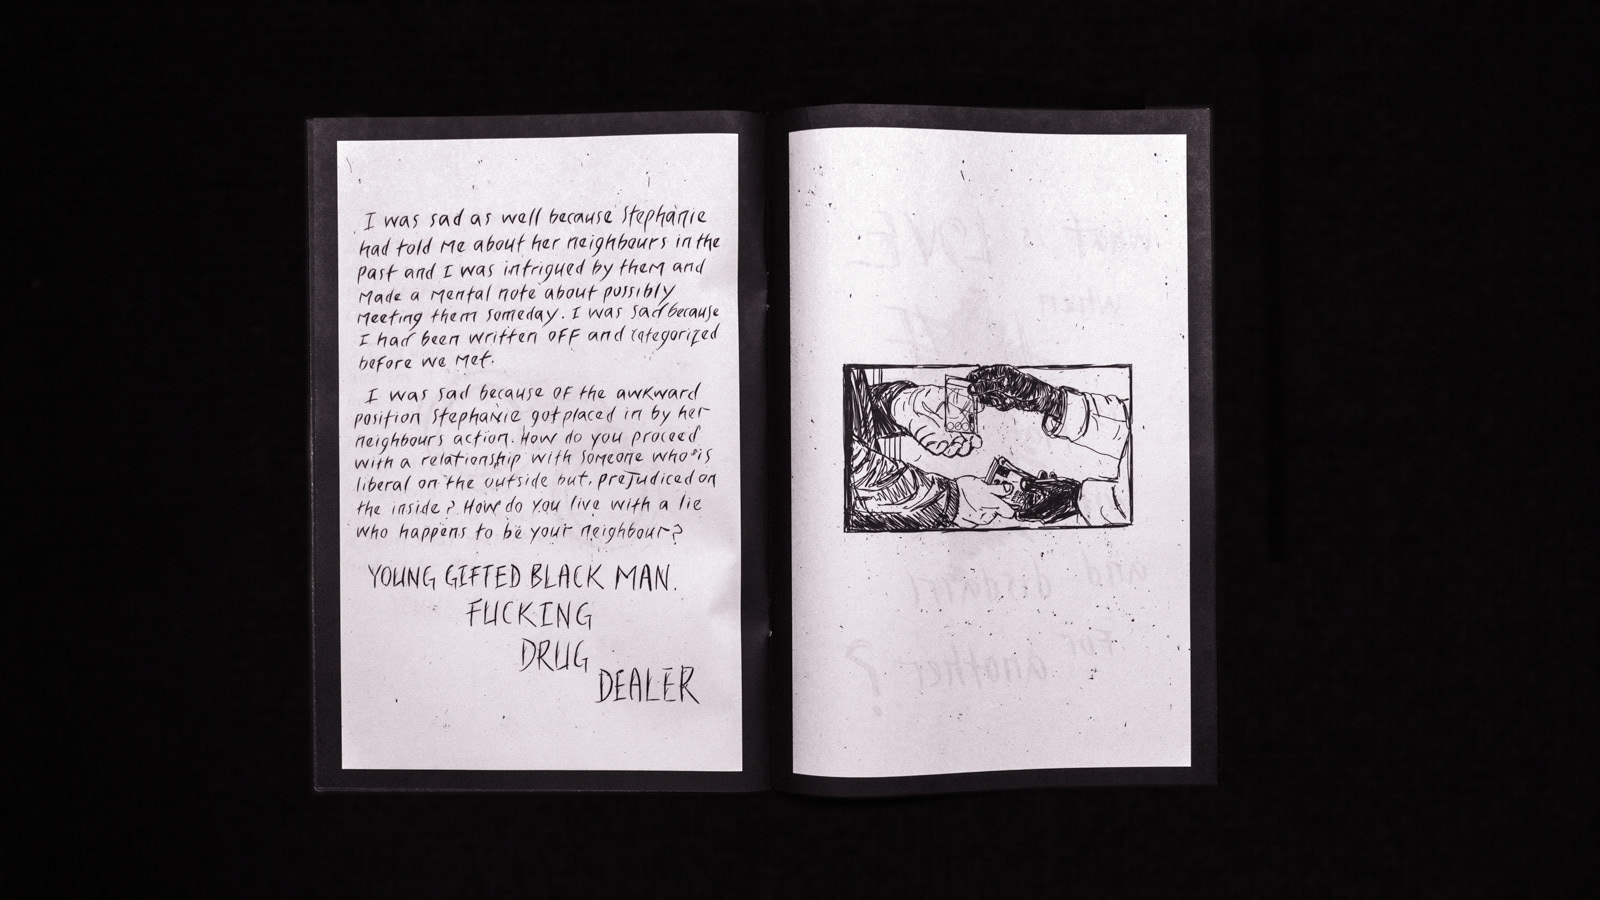 I was sad as well because Stephanie
had told me about her neighbours in the
past and I was intrigued by them and
made a mental note about possibly
meeting them someday. I was sad because
I had been written off and categorized
before we met.
I was sad because of the awkward
position Stephanie got placed in by her
neighbours action. How do you proceed
with a relationship with someone who is
liberal on the outside but, prejudiced on
the inside? How do you live with a lie
who happens to be your neighbour?
YOUNG GIFTED BLACK MAN.
FUCKING
DRUG
DEALER
what is LOVE
when
and disdain
for
another?